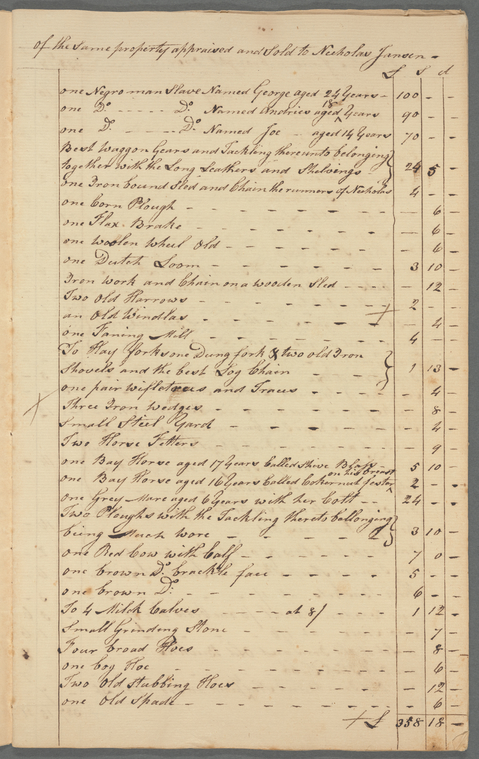 of the same property appraised and Sold to Nicholas Jansen -
£ S d
one Negro man Slave Named George aged 24 Years - 100 - -
one Do - - - - - Do Named Andries aged 18 Years 90 - -
one Do - - - - Do Named Joe - aged 14 Years 70 - -
Best Waggon Gears and Tackling thereunto belonging
together with the Long Leathers and Shelvings - 24 5 -
one Iron bound Sled and Chain the runners of Nicholas 4 - -
one Corn Plough - - - - - - - 6 -
one Flax Brake - - - - - - - 6 -
one woolen wheel Old - - - - - - 6 -
one Dutch Loom - - - - - 3 10 -
Iron work and Chain on a wooden Sled - - - - 12 -
Two Old Harrows - - - - - 2 - -
an Old Windlas - - - - - + - 4 -
one Faning Mill - - - - - 4 - -
To Hay forks one Dung fork & two old Iron
Shovels and the best Log Chain 1 13 -
one pair and Traces - - - - 4 -
Three Iron wedges - - - - - - 8 -
Small Steel Gard - - - - - - 4 -
Two Horse Fetters - - - - - - 9 -
one Bay Horse aged 17 Years Called Blass 5 10 -
one Bay Horse aged 16 Years Called on his breast 2 - -
one Grey Mare aged 6 Years with her Colt - - 24 - -
Two Ploughs with the Tackling thereto bellonging
being Much wore - - - - 3 10 -
one Red Cow with Calf - - - - - 7 0 -
one brown Do brackle face - - - - 5 - -
one brown Do - - - - - - 6 - -
To 4 Milch Calves - - - at 8/ - - 1 12 -
Small Grinding Stone - - - - - - 7 -
Four broad Hoes - - - - - - 8 -
one bog Hoe - - - - - - 6 -
Two Old stubbing Hoes - - - - - 12 -
one Old Spade - - - - - - - 6 -
+ £ 358 18 -